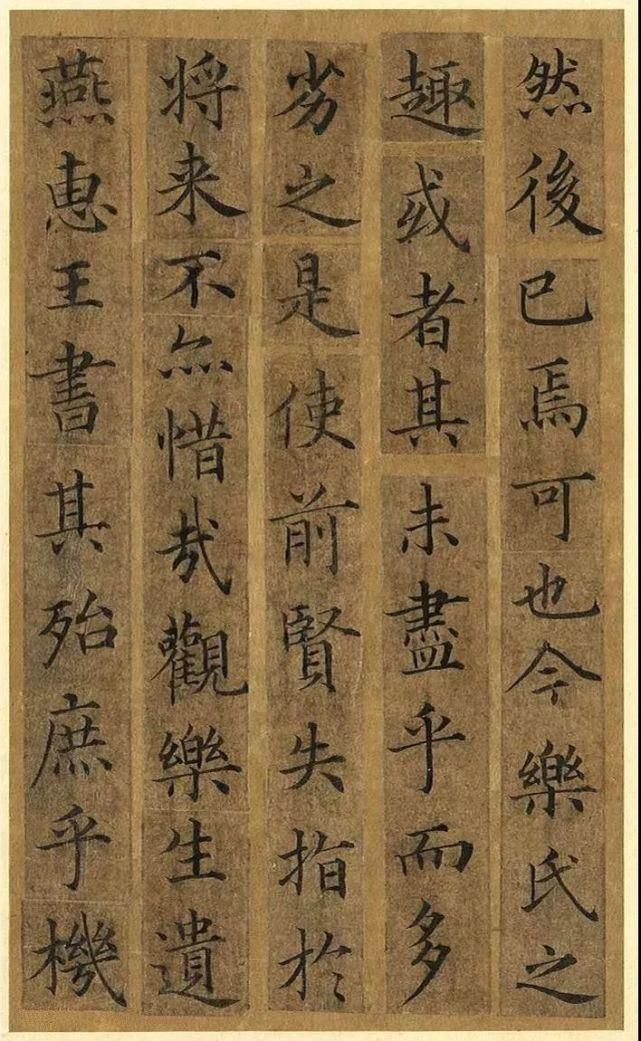 然後已焉可也今樂氏之
趣或者其未盡乎而多
劣之是使前賢失指於
将来不亦惜哉觀樂生遺
燕惠王書其殆庶乎機